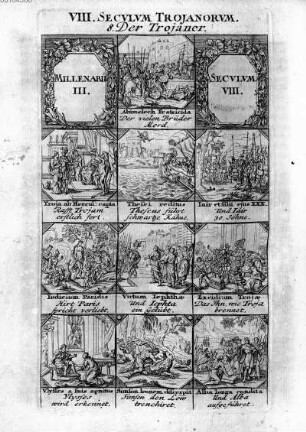 VIII. SECULUM TROJANORUM.
8 Der Trojaner.
MILLENARII
III.
SECULUM
VIII.
Abimelech fratricida
Der vielen Brüder
Mord.
Troja ab Hercul: capta
Rufft Trojam
erstlich fort.
Thesei reditus
Theseus führt
schwartze Kähne.
Iair et filii ejus XXX.
Und Iair
30 Söhne.
Iudicium Paridis
Hirt Paris
spricht verliebt.
Votum Iephthæ
und Iephta
ein Gelübd.
Excidium Trojæ
Das Ihn, wie Troja
brennet.
Ulysses a suis agnitus
Ulysses
wird erkennet.
Simson leonem
Simson den Löw
tronchiret.
Alba longa condita
Und Alba
aufgeführet.